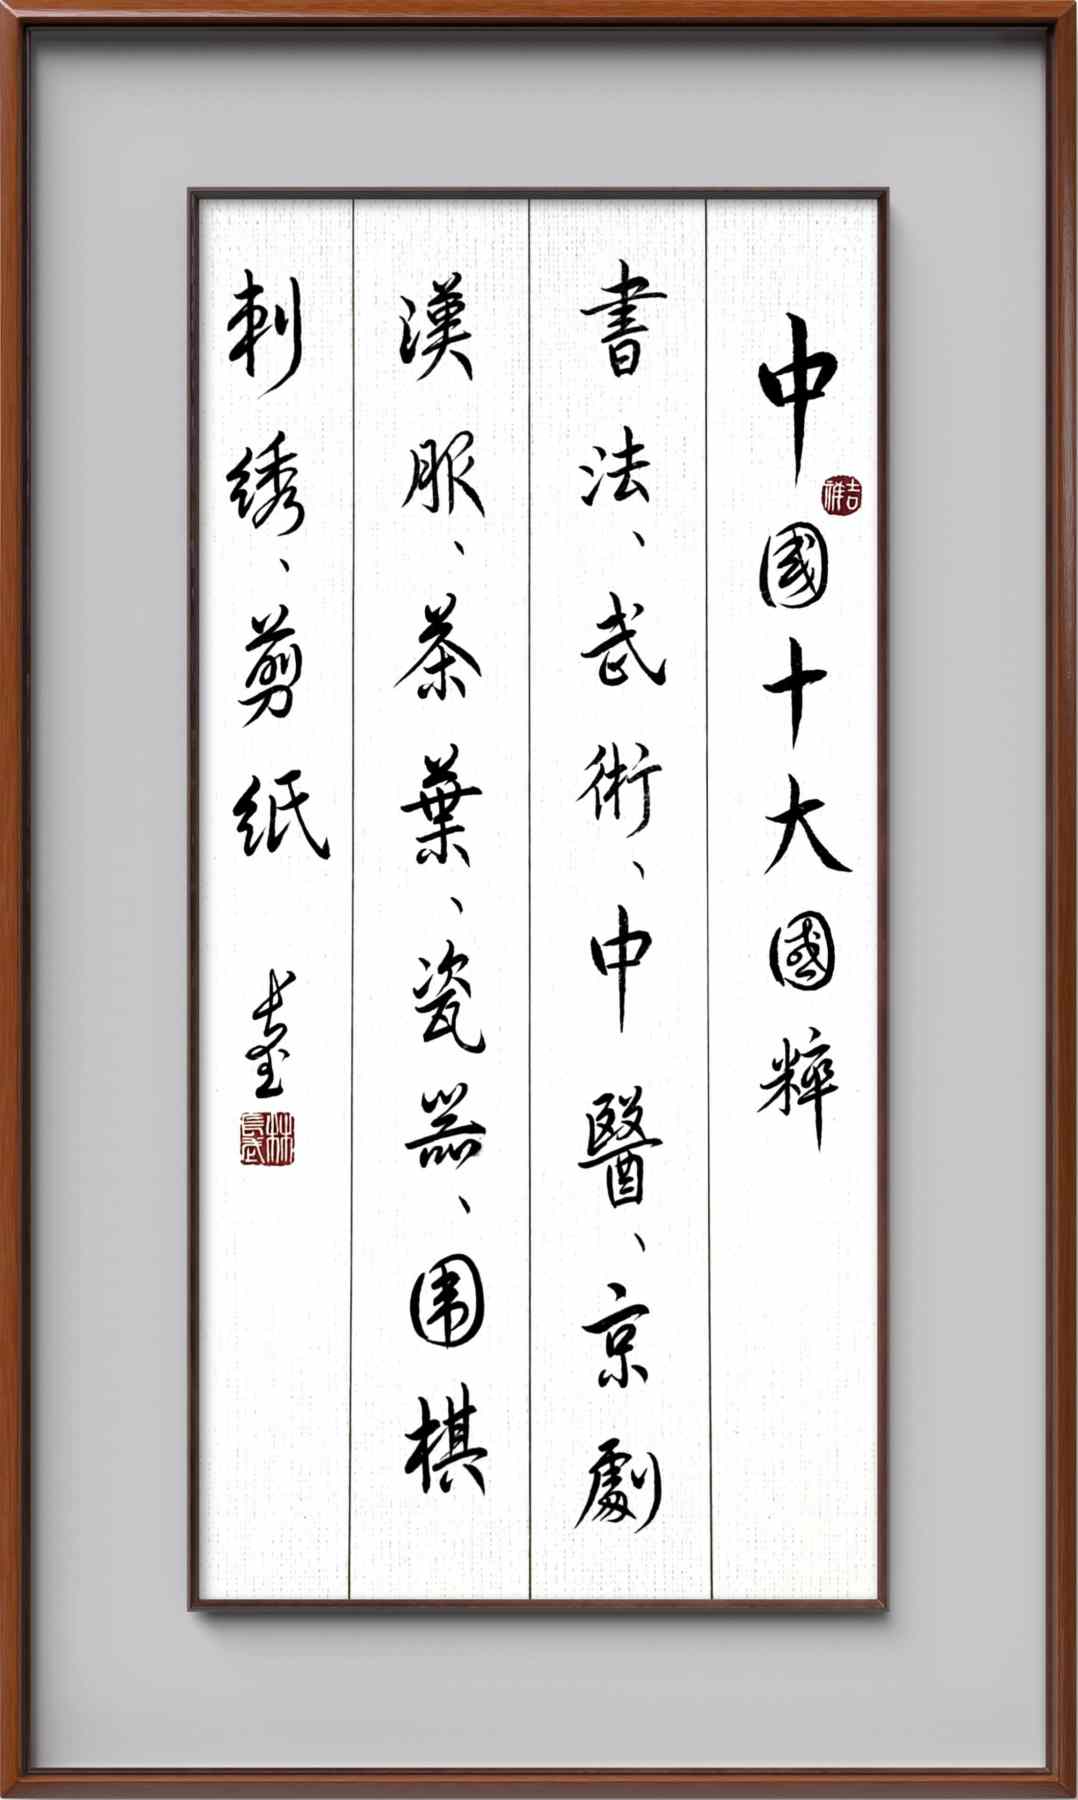 中國十大國粹
書法、武術、中醫、京劇
漢服、茶葉、瓷器、围棋
刺绣、剪纸
長武
吉祥
林長武